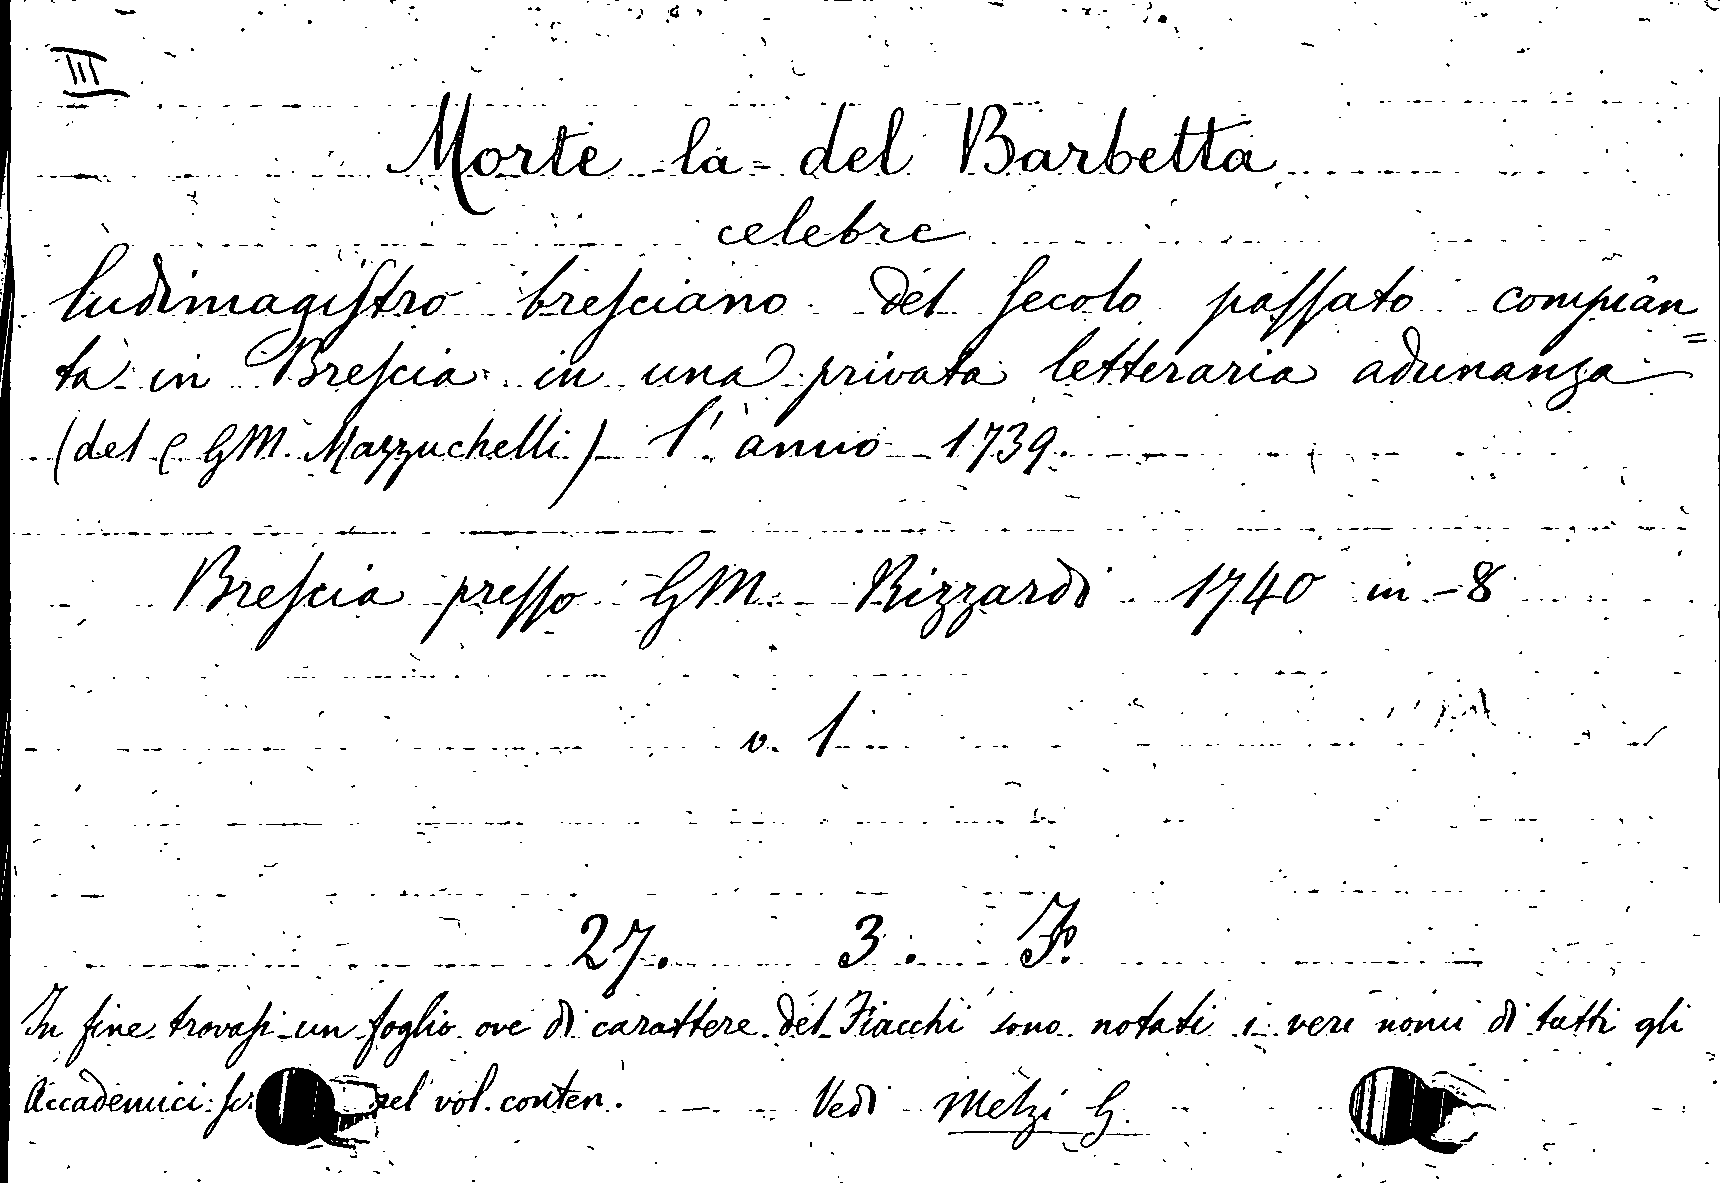 III
Morte la del Barbetta
celebre
ludimagiſtro breſciano del ſecolo paſſato compian=
ta in Breſcia in una privata letteraria adunanza
(del C GM. Mazzuchelli) l'anno 1739.
Breſcia preſſo GM. Rizzardi 1740 in-8
v. 1
27. 3. F.
In fine trovaſi un foglio ove di carattere del Fiacchi sono notati i veri nomi di tutti gli
Accademici nel vol. conten. Vedi Melzi G.